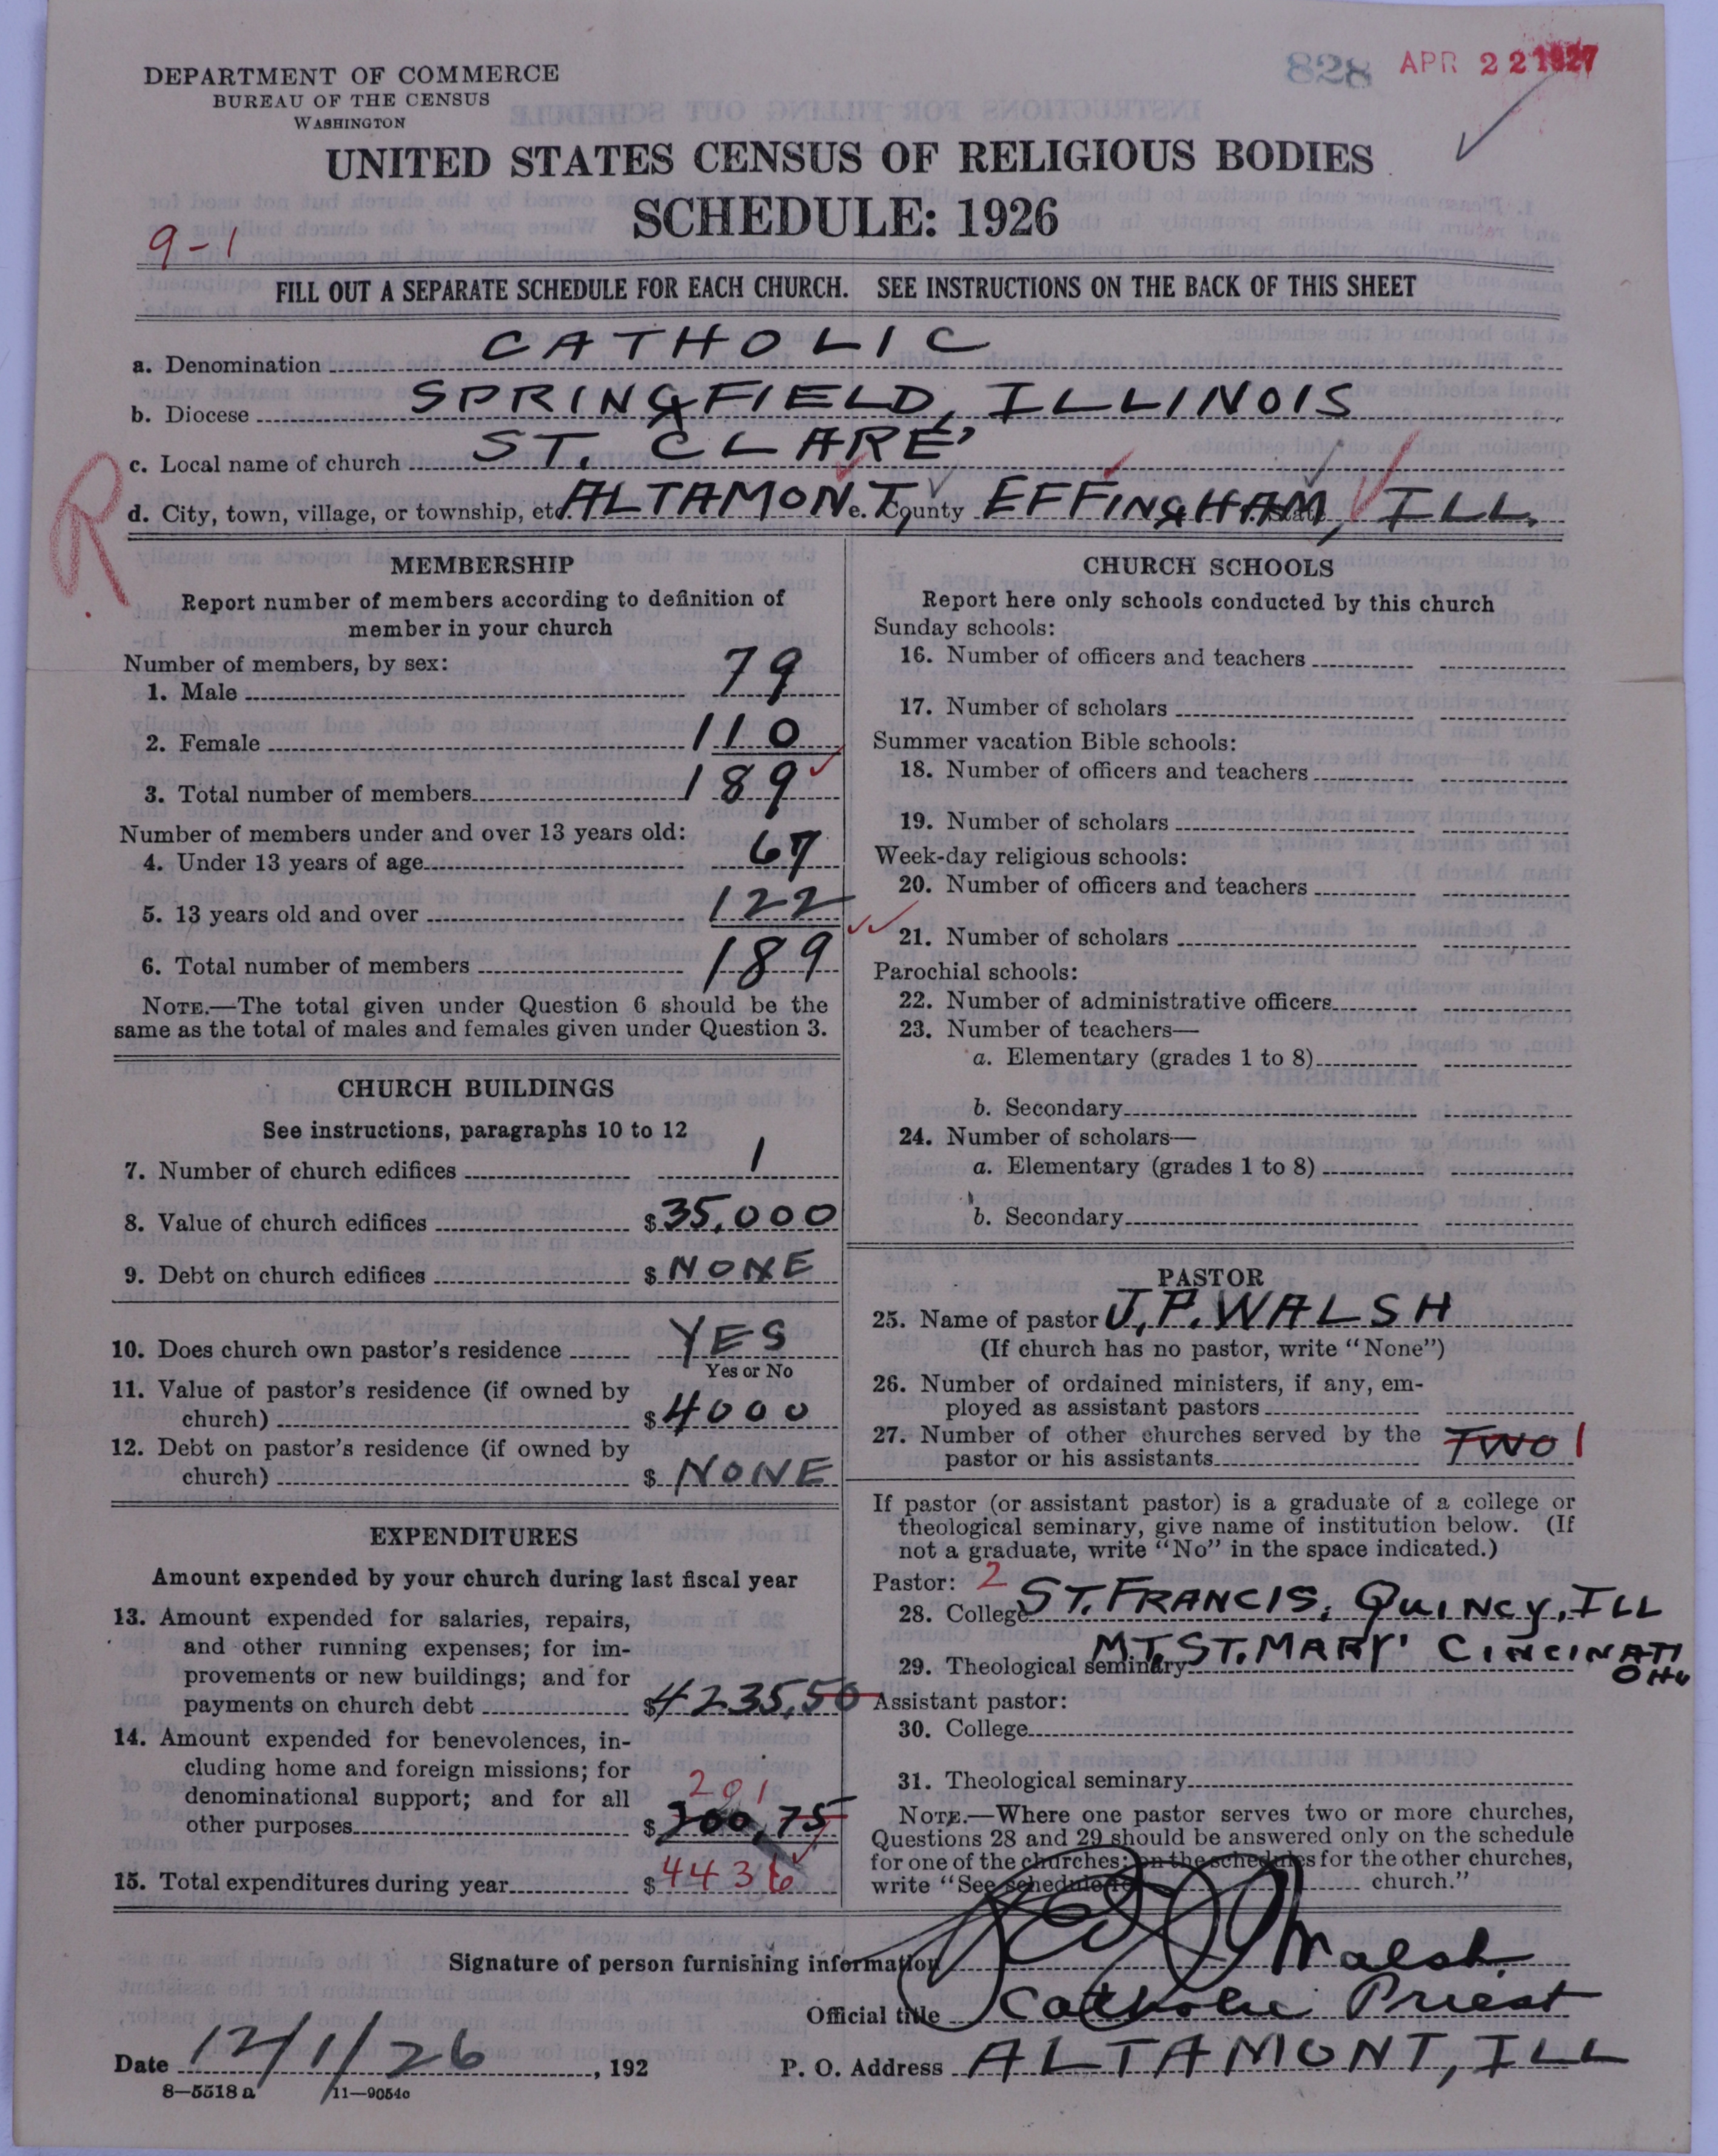 828 APR 22 1927
DEPARTMENT OF COMMERCE
BUREAU OF THE CENSUS
WASHINGTON
UNITED STATES CENSUS OF RELIGIOUS BODIES
SCHEDULE: 1926
9-1
FILL OUT A SEPARATE SCHEDULE FOR EACH CHURCH. SEE INSTRUCTIONS ON THE BACK OF THIS SHEET
a. Denomination CATHOLIC
b. Diocese SPRINGFIELD, ILLINOIS
c. Local name of church ST. CLARE'
R
d. City, town, village, or township, etc. ALTAMONT e. County EFFINGHAM, State ILL.
MEMBERSHIP
Report number of members according to definition of
member in your church
Number of members, by sex:
1. Male 79
2. Female 110
3. Total number of members 189
Number of members under and over 13 years old:
4. Under 13 years of age 67
5. 13 years old and over 122
6. Total number of members 189
NOTE.—The total given under Question 6 should be the
same as the total of males and females given under Question 3.
CHURCH BUILDINGS
See instructions, paragraphs 10 to 12
7. Number of church edifices 1
8. Value of church edifices $35,000
9. Debt on church edifices $ NONE
10. Does church own pastor's residence YES
Yes or No
11. Value of pastor's residence (if owned by
church) $4000
12. Debt on pastor's residence (if owned by
church) $ NONE
EXPENDITURES
Amount expended by your church during last fiscal year
13. Amount expended for salaries, repairs,
and other running expenses; for im-
provements or new buildings; and for
payments on church debt $4235,50
14. Amount expended for benevolences, in-
cluding home and foreign missions; for
denominational support; and for all 201
other purposes $200,75
15. Total expenditures during year $4436
CHURCH SCHOOLS
Report here only schools conducted by this church
Sunday schools:
16. Number of officers and teachers
17. Number of scholars
Summer vacation Bible schools:
18. Number of officers and teachers
19. Number of scholars
Week-day religious schools:
20. Number of officers and teachers
21. Number of scholars
Parochial schools:
22. Number of administrative officers
23. Number of teachers—
a. Elementary (grades 1 to 8)
b. Secondary
24. Number of scholars—
a. Elementary (grades 1 to 8)
b. Secondary
PASTOR
25. Name of pastor J.P. WALSH
(If church has no pastor, write "None")
26. Number of ordained ministers, if any, em-
ployed as assistant pastors
27. Number of other churches served by the TWO 1
pastor or his assistants
If pastor (or assistant pastor) is a graduate of a college or
theological seminary, give name of institution below. (If
not a graduate, write "No" in the space indicated.)
Pastor: 2
28. College ST. FRANCIS, QUINCY, ILL
29. Theological seminary MT. ST. MARY' CINCINATI
OHO
Assistant pastor:
30. College
31. Theological seminary
NOTE.—Where one pastor serves two or more churches,
Questions 28 and 29 should be answered only on the schedule
for one of the churches; on the schedules for the other churches,
write "See schedule for church."
Signature of person furnishing information J P Walsh
Official title Catholic Priest
Date 12/1/26, 192
P. O. Address ALTAMONT, ILL
8—5518 a 11—9054c